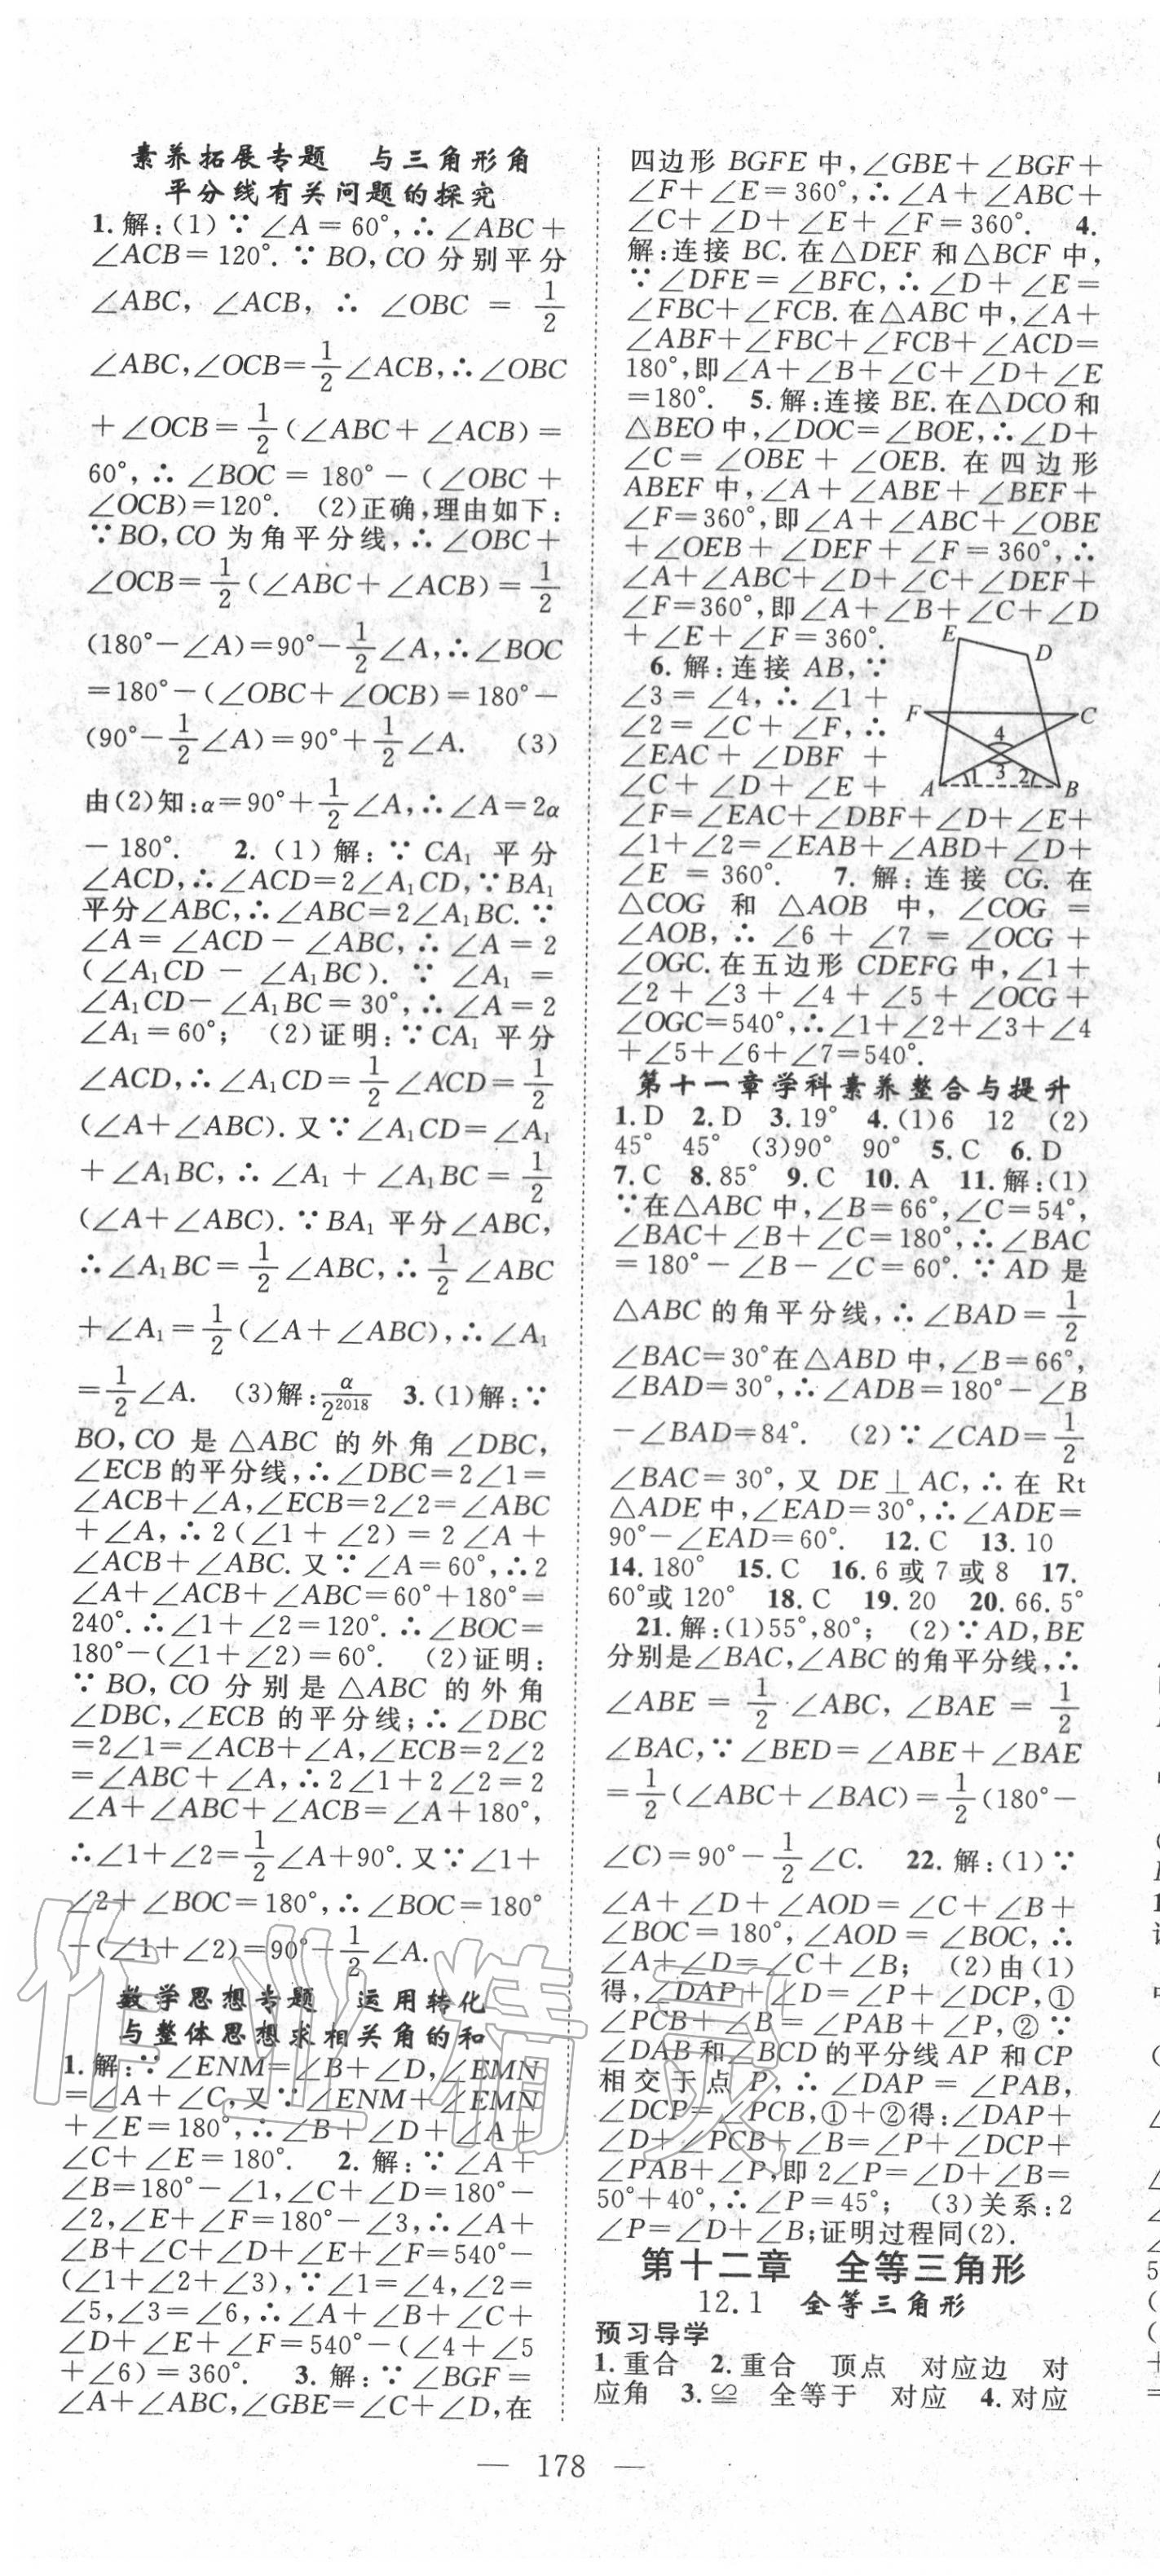 素养拓展专题 与三角形角
平分线有关问题的探究
1.解:(1)∵∠A=60°,∴∠ABC+
∠ACB=120°.∵BO,CO 分别平分
∠ABC,∠ACB,∴∠OBC=1/2
∠ABC,∠OCB=1/2∠ACB,∴∠OBC
+∠OCB=1/2(∠ABC+∠ACB)=
60°,∴∠BOC=180°-(∠OBC+
∠OCB)=120°. (2)正确,理由如下:
∵BO,CO 为角平分线,∴∠OBC+
∠OCB=1/2(∠ABC+∠ACB)=1/2
(180°-∠A)=90°-1/2∠A,∴∠BOC
=180°-(∠OBC+∠OCB)=180°-
(90°-1/2∠A)=90°+1/2∠A. (3)
由(2)知:α=90°+1/2∠A,∴∠A=2α
-180°. 2.(1)解:∵CA₁ 平分
∠ACD,∴∠ACD=2∠A₁CD,∵BA₁
平分∠ABC,∴∠ABC=2∠A₁BC.∵
∠A=∠ACD-∠ABC,∴∠A=2
(∠A₁CD-∠A₁BC).∵∠A₁=
∠A₁CD-∠A₁BC=30°,∴∠A=2
∠A₁=60°; (2)证明:∵CA₁ 平分
∠ACD,∴∠A₁CD=1/2∠ACD=1/2
(∠A+∠ABC).又∵∠A₁CD=∠A₁
+∠A₁BC,∴∠A₁+∠A₁BC=1/2
(∠A+∠ABC).∵BA₁ 平分∠ABC,
∴∠A₁BC=1/2∠ABC,∴1/2∠ABC
+∠A₁=1/2(∠A+∠ABC),∴∠A₁
=1/2∠A. (3)解:α/2²⁰¹⁸ 3.(1)解:∵
BO,CO 是△ABC 的外角∠DBC,
∠ECB 的平分线,∴∠DBC=2∠1=
∠ACB+∠A,∠ECB=2∠2=∠ABC
+∠A,∴2(∠1+∠2)=2∠A+
∠ACB+∠ABC.又∵∠A=60°,∴2
∠A+∠ACB+∠ABC=60°+180°=
240°.∴∠1+∠2=120°.∴∠BOC=
180°-(∠1+∠2)=60°. (2)证明:
∵BO,CO 分别是△ABC 的外角
∠DBC,∠ECB 的平分线;∴∠DBC
=2∠1=∠ACB+∠A,∠ECB=2∠2
=∠ABC+∠A,∴2∠1+2∠2=2
∠A+∠ABC+∠ACB=∠A+180°,
∴∠1+∠2=1/2∠A+90°.又∵∠1+
∠2+∠BOC=180°,∴∠BOC=180°
-(∠1+∠2)=90°-1/2∠A.
数学思想专题 运用转化
与整体思想求相关角的和
1.解:∵∠ENM=∠B+∠D,∠EMN
=∠A+∠C,又∵∠ENM+∠EMN
+∠E=180°,∴∠B+∠D+∠A+
∠C+∠E=180°. 2.解:∵∠A+
∠B=180°-∠1,∠C+∠D=180°-
∠2,∠E+∠F=180°-∠3,∴∠A+
∠B+∠C+∠D+∠E+∠F=540°-
(∠1+∠2+∠3),∵∠1=∠4,∠2=
∠5,∠3=∠6,∴∠A+∠B+∠C+
∠D+∠E+∠F=540°-(∠4+∠5
+∠6)=360°. 3.解:∵∠BGF=
∠A+∠ABC,∠GBE=∠C+∠D,在
四边形 BGFE 中,∠GBE+∠BGF+
∠F+∠E=360°,∴∠A+∠ABC+
∠C+∠D+∠E+∠F=360°. 4.
解:连接 BC.在△DEF 和△BCF 中,
∵∠DFE=∠BFC,∴∠D+∠E=
∠FBC+∠FCB.在△ABC 中,∠A+
∠ABF+∠FBC+∠FCB+∠ACD=
180°,即∠A+∠B+∠C+∠D+∠E
=180°. 5.解:连接 BE.在△DCO 和
△BEO 中,∠DOC=∠BOE,∴∠D+
∠C=∠OBE+∠OEB.在四边形
ABEF 中,∠A+∠ABE+∠BEF+
∠F=360°,即∠A+∠ABC+∠OBE
+∠OEB+∠DEF+∠F=360°,∴
∠A+∠ABC+∠D+∠C+∠DEF+
∠F=360°,即∠A+∠B+∠C+∠D
+∠E+∠F=360°.
6.解:连接 AB,∵
∠3=∠4,∴∠1+
∠2=∠C+∠F,∴
∠EAC+∠DBF+
∠C+∠D+∠E+
E
D
F
C
4
A
1
3
2
B
∠F=∠EAC+∠DBF+∠D+∠E+
∠1+∠2=∠EAB+∠ABD+∠D+
∠E=360°. 7.解:连接 CG.在
△COG 和△AOB 中,∠COG=
∠AOB,∴∠6+∠7=∠OCG+
∠OGC.在五边形 CDEFG 中,∠1+
∠2+∠3+∠4+∠5+∠OCG+
∠OGC=540°,∴∠1+∠2+∠3+∠4
+∠5+∠6+∠7=540°.
第十一章学科素养整合与提升
1.D 2.D 3.19° 4.(1)6 12 (2)
45° 45° (3)90° 90° 5.C 6.D
7.C 8.85° 9.C 10.A 11.解:(1)
∵在△ABC 中,∠B=66°,∠C=54°,
∠BAC+∠B+∠C=180°,∴∠BAC
=180°-∠B-∠C=60°.∵AD 是
△ABC 的角平分线,∴∠BAD=1/2
∠BAC=30°在△ABD 中,∠B=66°,
∠BAD=30°,∴∠ADB=180°-∠B
-∠BAD=84°. (2)∵∠CAD=1/2
∠BAC=30°,又 DE⊥AC,∴在 Rt
△ADE 中,∠EAD=30°,∴∠ADE=
90°-∠EAD=60°. 12.C 13.10
14.180° 15.C 16.6 或 7 或 8 17.
60°或 120° 18.C 19.20 20.66.5°
21.解:(1)55°,80°; (2)∵AD,BE
分别是∠BAC,∠ABC 的角平分线,∴
∠ABE=1/2∠ABC,∠BAE=1/2
∠BAC,∵∠BED=∠ABE+∠BAE
=1/2(∠ABC+∠BAC)=1/2(180°-
∠C)=90°-1/2∠C. 22.解:(1)∵
∠A+∠D+∠AOD=∠C+∠B+
∠BOC=180°,∠AOD=∠BOC,∴
∠A+∠D=∠C+∠B; (2)由(1)
得,∠DAP+∠D=∠P+∠DCP,①
∠PCB+∠B=∠PAB+∠P,②∵
∠DAB 和∠BCD 的平分线 AP 和 CP
相交于点 P,∴∠DAP=∠PAB,
∠DCP=∠PCB,①+②得:∠DAP+
∠D+∠PCB+∠B=∠P+∠DCP+
∠PAB+∠P,即 2∠P=∠D+∠B=
50°+40°,∴∠P=45°; (3)关系:2
∠P=∠D+∠B;证明过程同(2).
第十二章 全等三角形
12.1 全等三角形
预习导学
1.重合 2.重合 顶点 对应边 对
应角 3.≌ 全等于 对应 4.对应
— 178 —